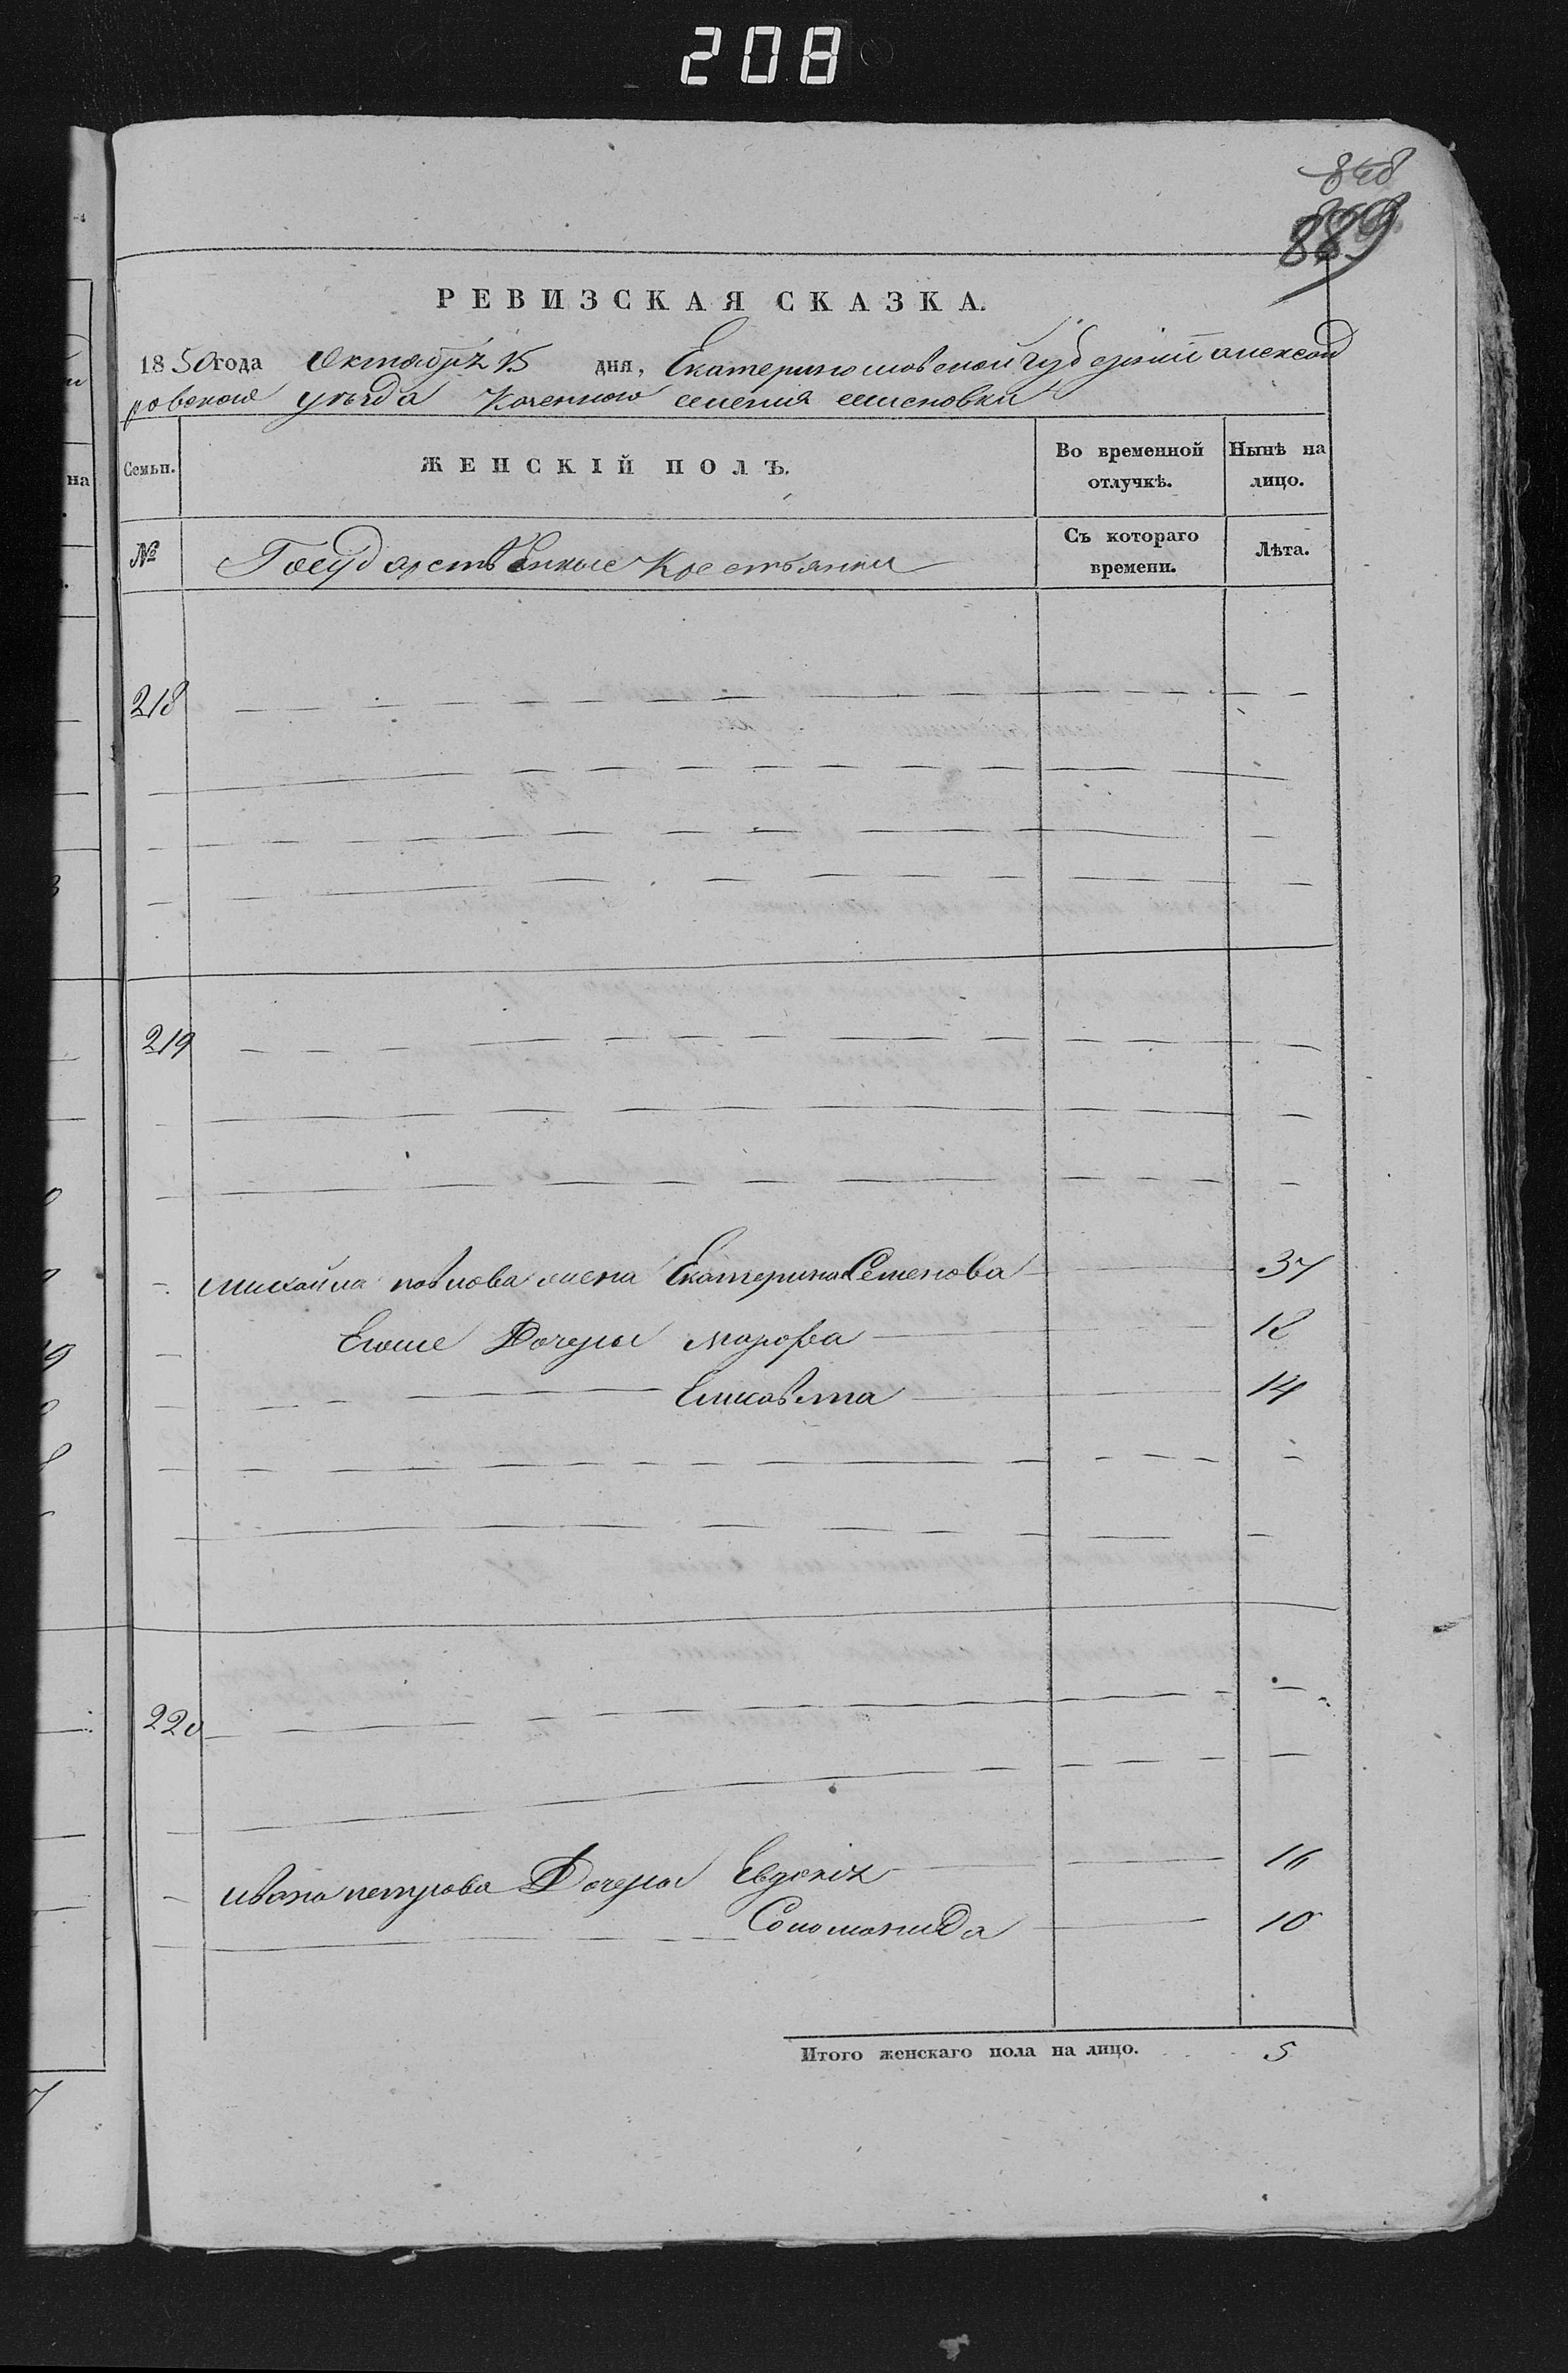 208
848
889
РЕВИЗСКАЯ СКАЗКА.
1850 года Октября 15 дня, Екатеринославской губерніи Александ
ровского уезда Казенного селения
Семьи. ЖЕНСКІЙ ПОЛЪ. Во временной отлучкѣ. Нынѣ на лицо.
№ Государственные Крестьянки Съ котораго времени. Лѣта.
218
219
Михайла павлова жена Екатерина Семенова 37
Егоже Дочери марфа 18
Елисавета 14
220
ивана петрова Дочери Евдокія 16
Соломанида 10
Итого женскаго пола на лицо. 5